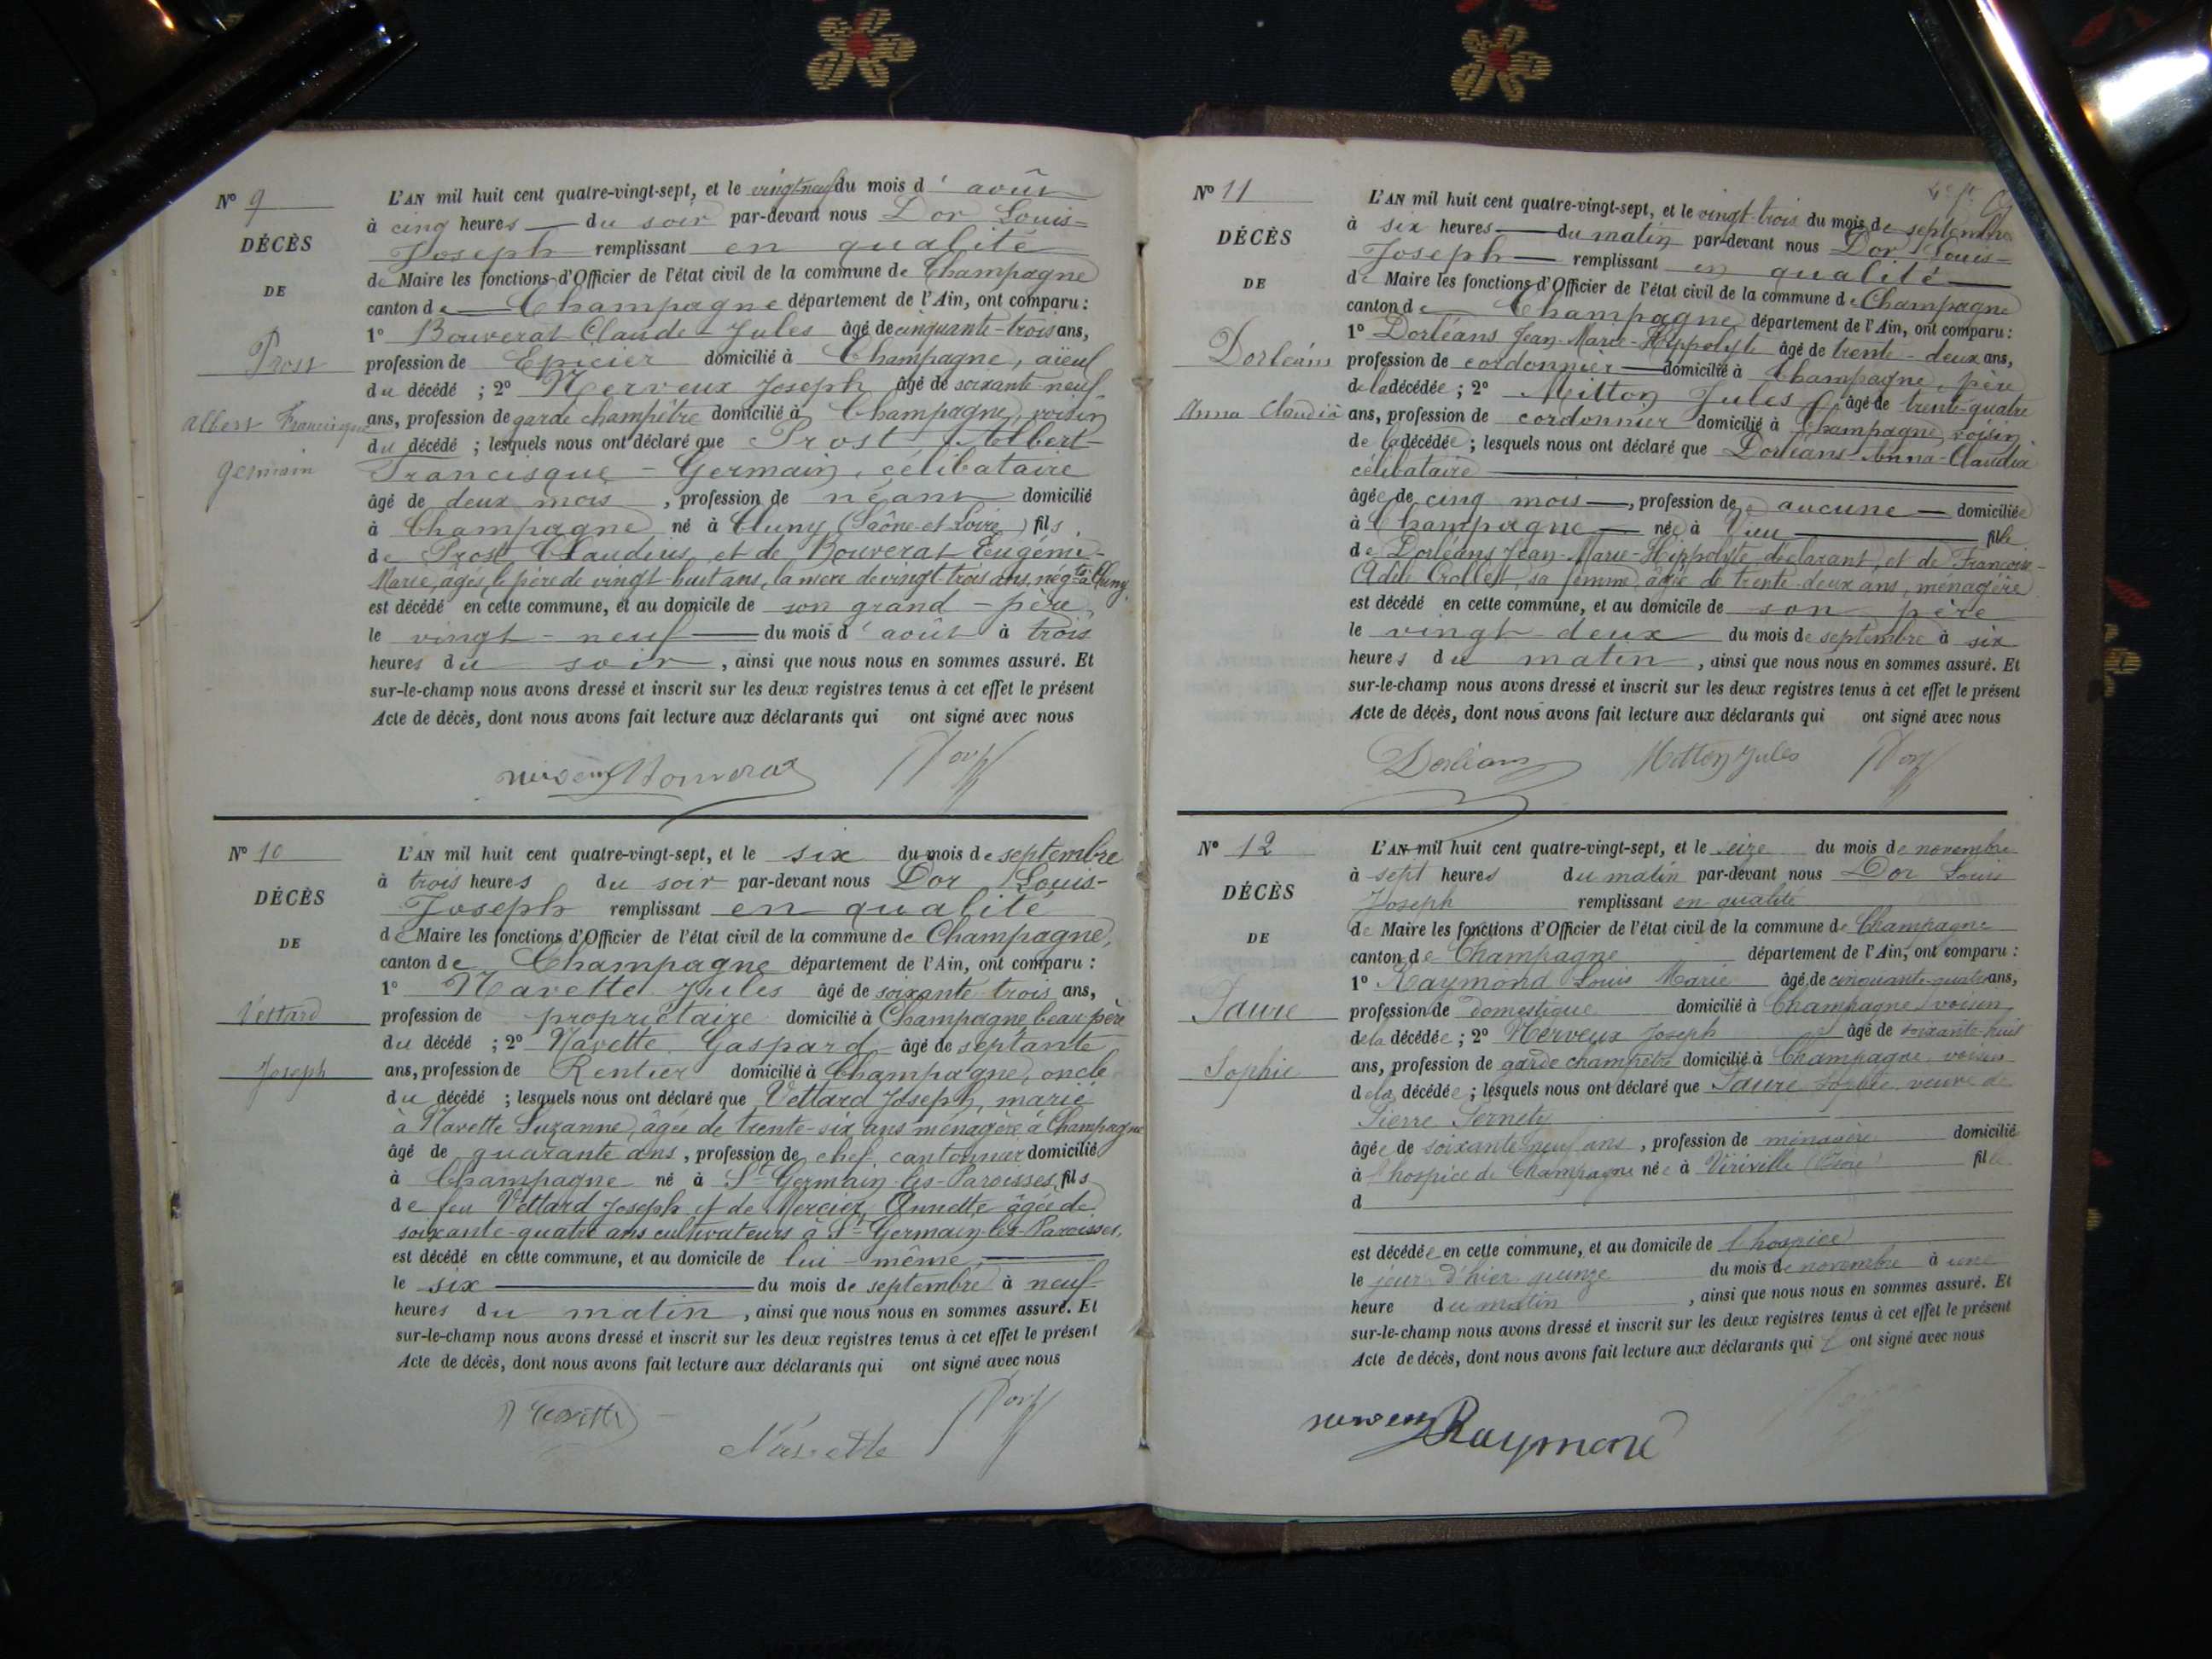 N° 9
DÉCÈS
DE
Prost
Albert Francisque
Germain
L'AN mil huit cent quatre-vingt-sept, et le vingt-neuf du mois d'août
à cinq heures du soir par-devant nous Dor Louis-
Joseph remplissant en qualité
de Maire les fonctions d'Officier de l'état civil de la commune de Champagne
canton de Champagne département de l'Ain, ont comparu :
1° Bouverat Claude Jules âgé de cinquante-trois ans,
profession de Epicier domicilié à Champagne, aïeul
du décédé ; 2° Nerveux Joseph âgé de soixante-neuf
ans, profession de garde champêtre domicilié à Champagne, voisin
du décédé ; lesquels nous ont déclaré que Prost Albert-
Francisque-Germain, célibataire
âgé de deux mois, profession de néant domicilié
à Champagne né à Cluny (Saône-et-Loire) fils
de Prost Claudius et de Bouverat Eugénie-
Marie, âgés le père de vingt-huit ans, la mère de vingt-trois ans, négts à Cluny
est décédé en cette commune, et au domicile de son grand-père,
le vingt-neuf du mois d'août à trois
heures du soir, ainsi que nous nous en sommes assuré. Et
sur-le-champ nous avons dressé et inscrit sur les deux registres tenus à cet effet le présent
Acte de décès, dont nous avons fait lecture aux déclarants qui ont signé avec nous
Bouverat
Dor
N° 10
DÉCÈS
DE
Vettard
Joseph
L'AN mil huit cent quatre-vingt-sept, et le six du mois de septembre
à trois heures du soir par-devant nous Dor Louis-
Joseph remplissant en qualité
de Maire les fonctions d'Officier de l'état civil de la commune de Champagne,
canton de Champagne département de l'Ain, ont comparu :
1° Navette Jules âgé de soixante trois ans,
profession de propriétaire domicilié à Champagne beau-père
du décédé ; 2° Navette Gaspard âgé de septante
ans, profession de Rentier domicilié à Champagne, oncle
du décédé ; lesquels nous ont déclaré que Vettard Joseph, marié
à Navette Suzanne, âgée de trente-six ans ménagère à Champagne
âgé de quarante ans, profession de chef cantonnier domicilié
à Champagne né à St Germain-les-Paroisses, fils
de feu Vettard Joseph et de Mercier Annette âgée de
soixante-quatre ans cultivateurs à St Germain-les-Paroisses,
est décédé en cette commune, et au domicile de lui-même,
le six du mois de septembre à neuf
heures du matin, ainsi que nous nous en sommes assuré. Et
sur-le-champ nous avons dressé et inscrit sur les deux registres tenus à cet effet le présent
Acte de décès, dont nous avons fait lecture aux déclarants qui ont signé avec nous
Navette
Navette
Dor
N° 11
DÉCÈS
DE
Dorléans
Anna Claudia
L'AN mil huit cent quatre-vingt-sept, et le vingt-trois du mois de septembre
à six heures du matin par-devant nous Dor Louis-
Joseph remplissant en qualité
de Maire les fonctions d'Officier de l'état civil de la commune de Champagne
canton de Champagne département de l'Ain, ont comparu :
1° Dorléans Jean-Marie-Hippolyte âgé de trente-deux ans,
profession de cordonnier domicilié à Champagne, père
de la décédée ; 2° Mitton Jules âgé de trente-quatre
ans, profession de cordonnier domicilié à Champagne, voisin
de la décédée ; lesquels nous ont déclaré que Dorléans Anna-Claudia
célibataire
âgée de cinq mois, profession de aucune domiciliée
à Champagne née à Vieu fille
de Dorléans Jean-Marie-Hippolyte déclarant, et de Françoise-
sa femme âgée de trente-deux ans, ménagère
est décédé en cette commune, et au domicile de son père
le vingt-deux du mois de septembre à six
heures du matin, ainsi que nous nous en sommes assuré. Et
sur-le-champ nous avons dressé et inscrit sur les deux registres tenus à cet effet le présent
Acte de décès, dont nous avons fait lecture aux déclarants qui ont signé avec nous
Dorléans Mitton Jules Dor
N° 12
DÉCÈS
DE
Faure
Sophie
L'AN mil huit cent quatre-vingt-sept, et le seize du mois de novembre
à sept heures du matin par-devant nous Dor Louis
Joseph remplissant en qualité
de Maire les fonctions d'Officier de l'état civil de la commune de Champagne
canton de Champagne département de l'Ain, ont comparu :
1° Raymond Louis Marie âgé de cinquante-quatre ans,
profession de domestique domicilié à Champagne voisin
de la décédée ; 2° Nerveux Joseph âgé de soixante-huit
ans, profession de garde champêtre domicilié à Champagne voisin
de la décédée ; lesquels nous ont déclaré que Faure Sophie veuve de
Pierre
âgée de soixante neuf ans, profession de ménagère domicilié
à l'hospice de Champagne née à Viriville (Isère) fille
d
est décédée en cette commune, et au domicile de l'hospice
le jour d'hier quinze du mois de novembre à une
heure du matin, ainsi que nous nous en sommes assuré. Et
sur-le-champ nous avons dressé et inscrit sur les deux registres tenus à cet effet le présent
Acte de décès, dont nous avons fait lecture aux déclarants qui ont signé avec nous
Raymond